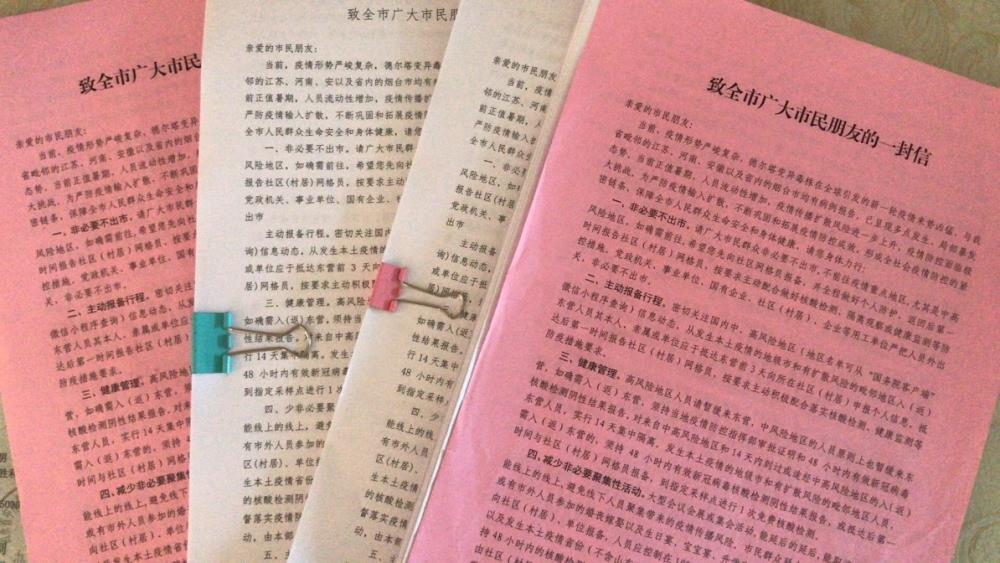 致全市广大市民
亲爱的市民朋友:
当前,疫情形势严峻复杂,德尔塔变异
省毗邻的江苏、河南、安徽以及省内的烟台
态势。当前正值暑期,人员流动性增加,
大挑战。为严防疫情输入扩散,不断巩固
密链条,保障全市人民群众生命安全和
一、非必要不出市。请广大市民群众
风险地区,如确需前往,希望您先向社
时间报告社区(村居)网格员、按要
控措施。党政机关、事业单位、国有
关、非必要不出市。
二、主动报备行程。密切关注
微信小程序查询)信息动态,从发
东营人员其本人、亲属或单位应
达后第一时间报告社区(村居)
防疫措施要求。
三、健康管理。高风险地
营,如确需入(返)东营,须
核酸检测阴性结果报告。对来
东营人员,实行14天集中
需入(返)东营的,须持48
时间与社区(村居)网格
四、减少非必要聚集
能线上的线上,避免线下
或有市外人员参加的婚
向社区(村居)、单位
以及发生本土疫情省
致全市广大市民朋
亲爱的市民朋友:
当前,疫情形势严峻复杂,德尔塔变异毒
邻的江苏、河南、安以及省内的烟台市均有
前正值暑期,人员流动性增加,疫情传播扩
严防疫情输入扩散,不断巩固和拓展疫情防
全市人民群众生命安全和身体健康,请您
一、非必要不出市。请广大市民群众
风险地区,如确需前往,希望您先向社
报告社区(村居)网格员,按要求主动
党政机关、事业单位、国有企业、社
出市
主动报备行程。密切关注国
询)信息动态,从发生本土疫情的
或单位应于抵达东营前3天向
居)网格员,按要求主动积极
三、健康管理。高风险
如确需入(返)东营,须持当
性结果报告。对来自中高风
行14天集中隔离。发生
48小时内有效新冠病毒
到指定采样点进行1次
四、少非必要聚
能线上的线上,避免
有市外人员参加的
区(村居)、单位
生本土疫情省份
的核酸检测阴
督落实疫情
由本部门
五、主
亲爱的市民朋友
当前,疫情
邻的江苏、河南
前正值暑期,人
严防疫情输入扩
全市人民群众
一、非必
风险地区,如
报告社区(村
党政机关、事
出市
主动报备
询)信息动
或单位应于
居)网格
三、
如确需入(返
性结果报告
行14天集中
48小时内
到指定采样
四、少
能线上的线
有市外
区(村居)、
生本土疫情
的核酸检测
督落实疫
由本部门
五、
致全市广大市民朋友的一封信
亲爱的市民朋友:
当前,疫情形势严峻复杂,德尔塔变异毒株在全球引发的新一轮疫情来势凶猛,与我
省毗邻的江苏、河南、安徽以及省内的烟台市均有病例报告,已呈现多点发生、局部暴发
态势。当前正值暑期,人员流动性增加,疫情传播扩散风险进一步上升,疫情防控面临极
大挑战。为严防疫情输入扩散,不断巩固和拓展疫情防控成效,形成全社会疫情防控的紧
密链条,保障全市人民群众生命安全和身体健康,请您身体力行:
一、非必要不出市。请广大市民群众非必要不出市,不前往疫情重点地区,尤其是中高
风险地区,如确需前往,希望您先向社区网格员报备,并全程做好个人防护。返回后第一
时间报告社区(村居)网格员、按要求主动配合做好核酸检测、隔离观察或健康监测等防
控措施。党政机关、事业单位、国有企业、社区(村居)、企业等用工单位严把人员外出
关、非必要不出市。
二、主动报备行程。密切关注国内中、高风险地区(地区名单可从“国务院客户端”
微信小程序查询)信息动态,从发生本土疫情的地级市和有扩散风险的毗邻地区入(返)
东营人员其本人、亲属或单位应于抵达东营前3天向所在社区(村居)申报个人信息,抵
达后第一时间报告社区(村居)网格员,按要求主动积极配合落实核酸检测、健康监测等
防疫措施要求。
三、健康管理。高风险地区人员请暂缓来东营,中风险地区的人员原则上也暂缓来东
营,如确需入(返)东营,须持当地疫情防控指挥部审批证明和48小时内有效新冠病毒
核酸检测阴性结果报告。对来自中高风险地区和14天内到过或途经中高风险地区的入(返)
东营人员,实行14天集中隔离。发生本土疫情的地级市和有扩散风险的毗邻地区人员,
需入(返)东营的,须持48小时内有效新冠病毒核酸检测阴性结果报告,或抵达后第一
时间与社区(村居)网格员报备,到指定采样点进行1次免费核酸检测。
四、减少非必要聚集性活动。大型会议会展或集会活动,能延后的延后,能
能线上的线上,避免线下人员聚集带来的疫情传播风险。市民群众
或有市外人员参加的婚丧嫁娶以及生日宴、宝宝宴、升学
向社区(村居)、单位报备,人员应控制在
以及发生本土疫情省份(不含山东
持48小时内的核酸检测
由社区(村居)